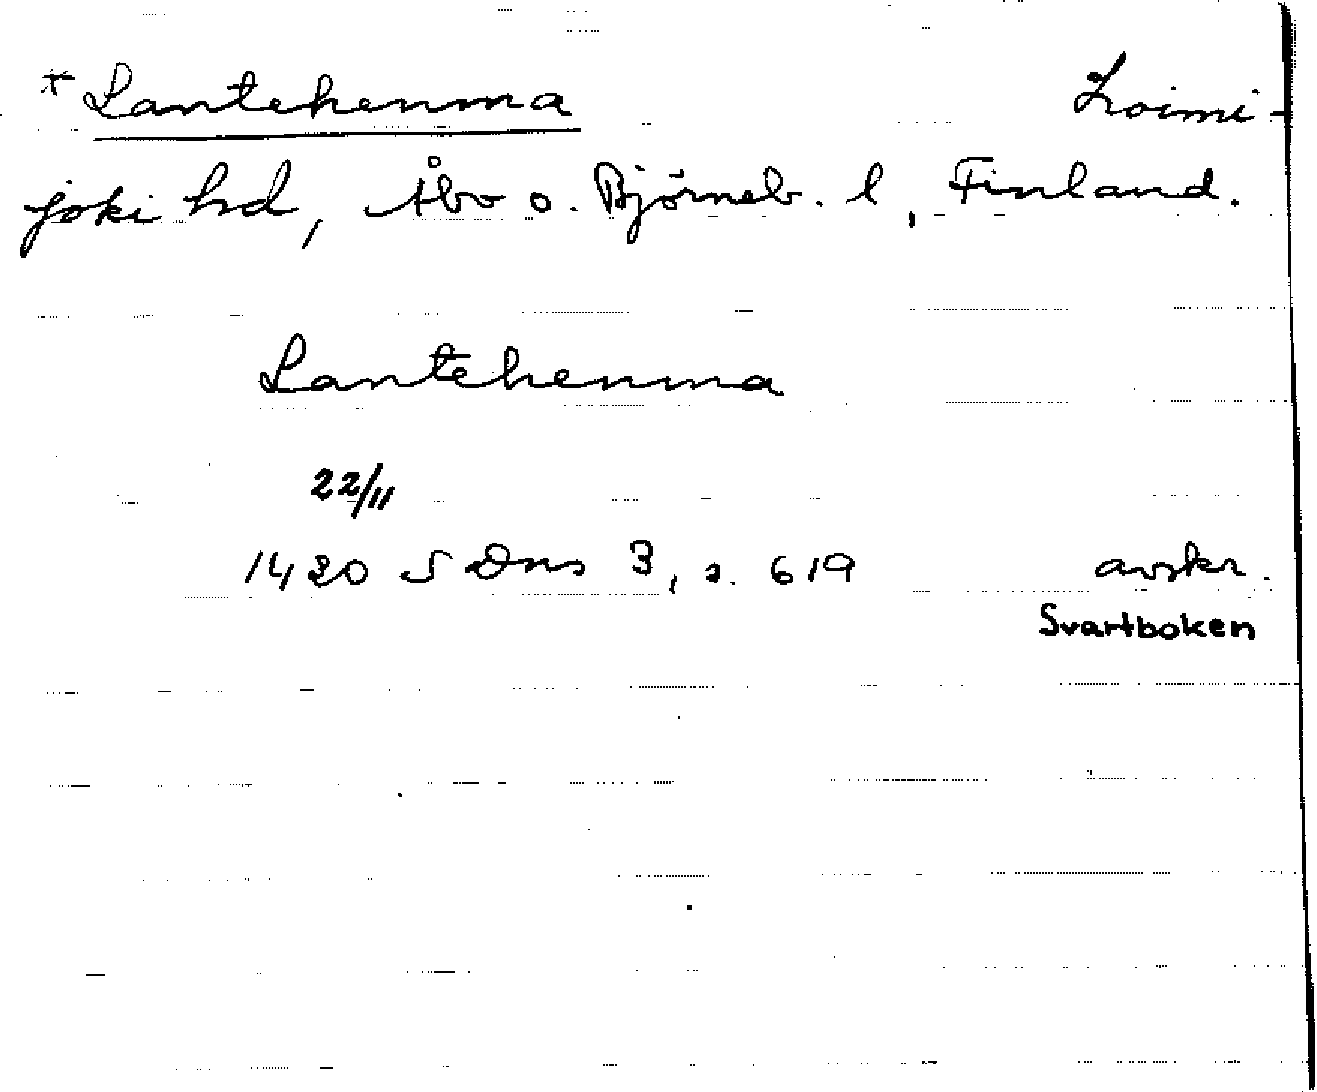 *Lantehenma Loimi-
joki hd, Åbo o. Björneb. l, Finland.
Lantehenma
22/11
1430 SDns 3, s. 619 avskr.
Svartboken